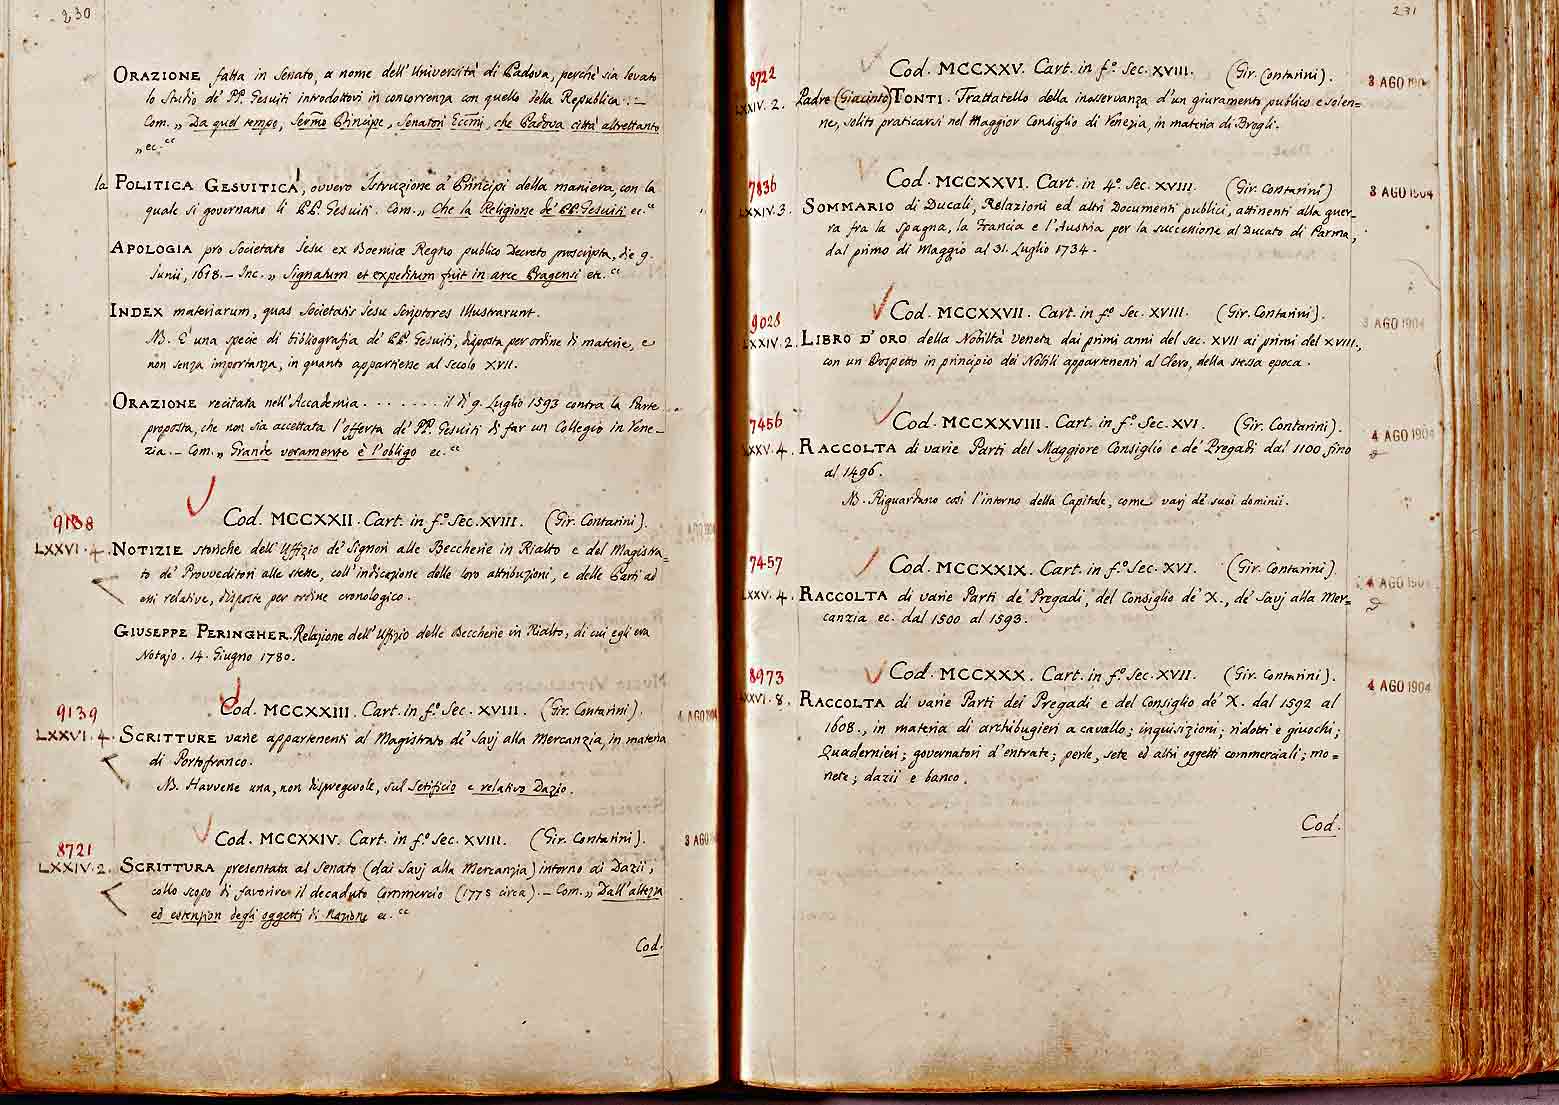 230
ORAZIONE fatta in Senato, a nome dell'Università di Padova, perchè sia levato
lo Studio de' PP. Gesuiti introdottovi in concorrenza con quello della Republica. –
Com. „ Da quel tempo, Sermo Principe, Senatori Eccmi, che Padova città altrettanto
„ ec. “
la POLITICA GESUITICA, ovvero Istruzione a' Principi della maniera, con la
quale si governano li PP. Gesuiti. Com. „ Che la Religione de' PP. Gesuiti ec. “
APOLOGIA pro Societate Jesu ex Boemiæ Regno publico Decreto proscripta, die 9.
Junii, 1618. – Inc. „ Signatum et expeditum fuit in arce Pragensi etc. “
INDEX materiarum, quas Societatis Jesu Scriptores illustrarunt.
NB. È una specie di bibliografia de' PP. Gesuiti, disposta per ordine di materie, e
non senza importanza, in quanto appartiene al secolo XVII.
ORAZIONE recitata nell'Accademia . . . . . . . il dì 9. Luglio 1593 contra la Parte
proposta, che non sia accettata l'offerta de' PP. Gesuiti di far un Collegio in Vene-
zia. – Com. „ Grande veramente è l'obligo ec. “
9138 Cod. MCCXXII. Cart. in fo. Sec. XVIII. (Gir. Contarini).
LXXVI. 4. NOTIZIE storiche dell'Uffizio de' Signori alle Beccherie in Rialto e del Magistra=
to de' Provveditori alle stesse, coll'indicazione delle loro attribuzioni, e delle Parti ad
essi relative, disposte per ordine cronologico.
GIUSEPPE PERINGHER. Relazione dell'Uffizio delle Beccherie in Rialto, di cui egli era
Notajo. 14. Giugno 1780.
9139 Cod. MCCXXIII. Cart. in fo. Sec. XVIII. (Gir. Contarini). 4 AGO 1904
LXXVI. 4. SCRITTURE varie appartenenti al Magistrato de' Savj alla Mercanzia, in materia
di Portofranco.
NB. Havvene una, non dispregevole, sul Setificio e relativo Dazio.
8721 Cod. MCCXXIV. Cart. in fo. Sec. XVIII. (Gir. Contarini). 3 AGO
LXXIV. 2. SCRITTURA presentata al Senato (dai Savj alla Mercanzia) intorno ai Dazii,
collo scopo di favorire il decaduto Commercio (1775 circa). – Com. „ Dall'altezza
ed estension degli oggetti di Nazione ec. “
Cod.
231
8722 Cod. MCCXXV. Cart. in fo. Sec. XVIII. (Gir. Contarini). 3 AGO 1904
LXXIV. 2. Padre (Giacinto) TONTI. Trattatello della inosservanza d'un giuramento publico e solen-
ne, solito praticarsi nel Maggior Consiglio di Venezia, in materia di Brogli.
7836 Cod. MCCXXVI. Cart. in 4o. Sec. XVIII. (Gir. Contarini) 3 AGO 1904
LXXIV. 3. SOMMARIO di Ducali, Relazioni ed altri Documenti publici, attinenti alla guer-
ra fra la Spagna, la Francia e l'Austria per la successione al Ducato di Parma,
dal primo di Maggio al 31. Luglio 1734.
9028 Cod. MCCXXVII. Cart. in fo. Sec. XVIII. (Gir. Contarini). 3 AGO 1904
LXXIV. 2. LIBRO D'ORO della Nobiltà Veneta dai primi anni del sec. XVII ai primi del XVIII.,
con un Prospetto in principio dei Nobili appartenenti al Clero, della stessa epoca.
7456 Cod. MCCXXVIII. Cart. in fo. Sec. XVI. (Gir. Contarini). 4 AGO 1904
LXXV. 4. RACCOLTA di varie Parti del Maggiore Consiglio e de' Pregadi dal 1100 fino
al 1496.
NB. Riguardano così l'interno della Capitale, come varj de' suoi dominii.
7457 Cod. MCCXXIX. Cart. in fo. Sec. XVI. (Gir. Contarini). 4 AGO 1904
LXXV. 4. RACCOLTA di varie Parti de' Pregadi, del Consiglio de' X., de' Savj alla Mer=
canzia ec. dal 1500 al 1593.
8973 Cod. MCCXXX. Cart. in fo. Sec. XVII. (Gir. Contarini). 4 AGO 1904
LXXVI. 8. RACCOLTA di varie Parti dei Pregadi e del Consiglio de' X. dal 1592 al
1608., in materia di archibugieri a cavallo; inquisizioni; ridotti e giuochi;
Quadernieri; governatori d'entrate; perle, sete ed altri oggetti commerciali; mo=
nete; dazii e banco.
Cod.